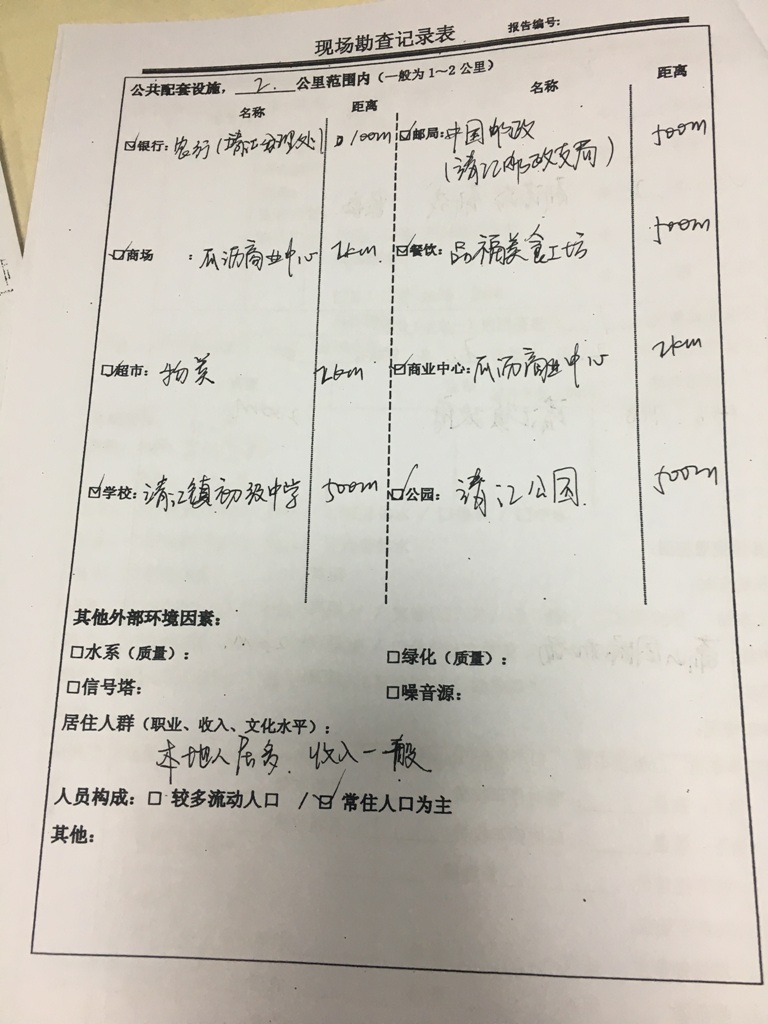 现场勘查记录表
报告编号:
公共配套设施, 2. 公里范围内(一般为1~2公里)
名称 距离 名称 距离
☑银行: 农行(靖江分理处) 100m ☑邮局: 中国邮政 500m
(靖江邮政支局)
☑商场 : 瓜沥商业中心 2km. ☑餐饮: 品福美食工坊 500m
☑超市: 物美 2km ☑商业中心: 瓜沥商业中心 2km
☑学校: 靖江镇初级中学 500m ☑公园: 靖江公园. 500m
其他外部环境因素:
□水系(质量): □绿化(质量):
□信号塔: □噪音源:
居住人群(职业、收入、文化水平):
本地人居多. 收入一般
人员构成: □ 较多流动人口 / ☑ 常住人口为主
其他: